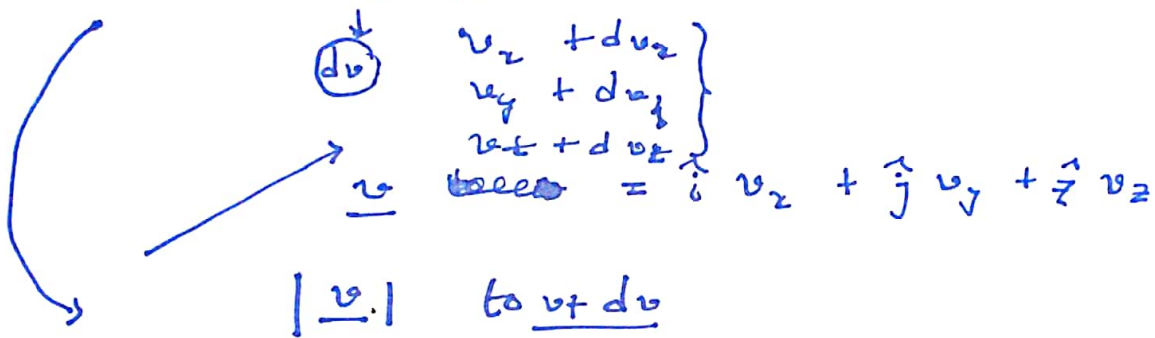 dv v_x + dv_x
v_y + dv_y
v_z + dv_z
v = î v_x + ĵ v_y + ẑ v_z
|v.| to v+ dv